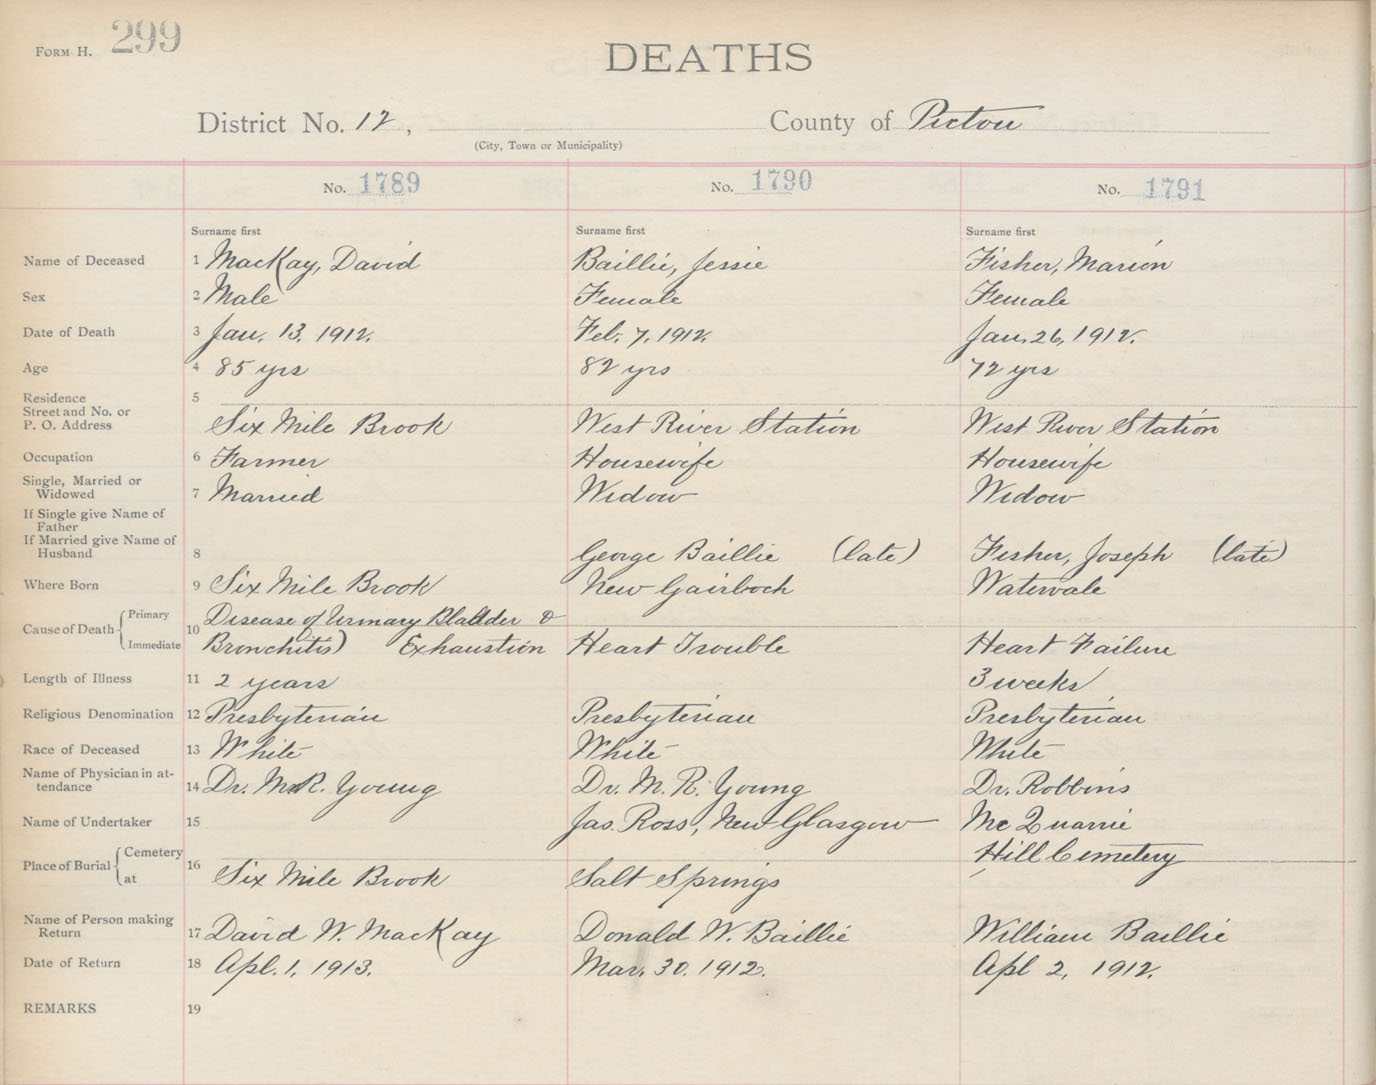 FORM H. 299
DEATHS
District No. 12, County of Pictou
(City, Town or Municipality)
No. 1789 No. 1790 No. 1791
Surname first Surname first Surname first
Name of Deceased 1 MacKay, David Baillie, Jessie Fisher, Marion
Sex 2 Male Female Female
Date of Death 3 Jan. 13. 1912. Feb. 7, 1912. Jan. 26, 1912.
Age 4 85 yrs 82 yrs 72 yrs
Residence 5
Street and No. or
P. O. Address Six Mile Brook West River Station West River Station
Occupation 6 Farmer Housewife Housewife
Single, Married or
Widowed 7 Married Widow Widow
If Single give Name of
Father
If Married give Name of
Husband 8 George Baillie (late) Fisher, Joseph (late)
Where Born 9 Six Mile Brook New Gairloch Watervale
Cause of Death Primary 10 Disease of Urinary Bladder &
Immediate Bronchitis) Exhaustion Heart Trouble Heart Failure
Length of Illness 11 2 years 3 weeks
Religious Denomination 12 Presbyterian Presbyterian Presbyterian
Race of Deceased 13 White White White
Name of Physician in at-
tendance 14 Dr. M. R. Young Dr. M. R. Young Dr. Robbins
Name of Undertaker 15 Jas. Ross, New Glasgow Mc Quarrie
Place of Burial Cemetery 16 Hill Cemetery
at Six Mile Brook Salt Springs
Name of Person making
Return 17 David W. MacKay Donald W. Baillie William Baillie
Date of Return 18 Apl. 1, 1913. Mar. 30. 1912. Apl 2, 1912.
REMARKS 19